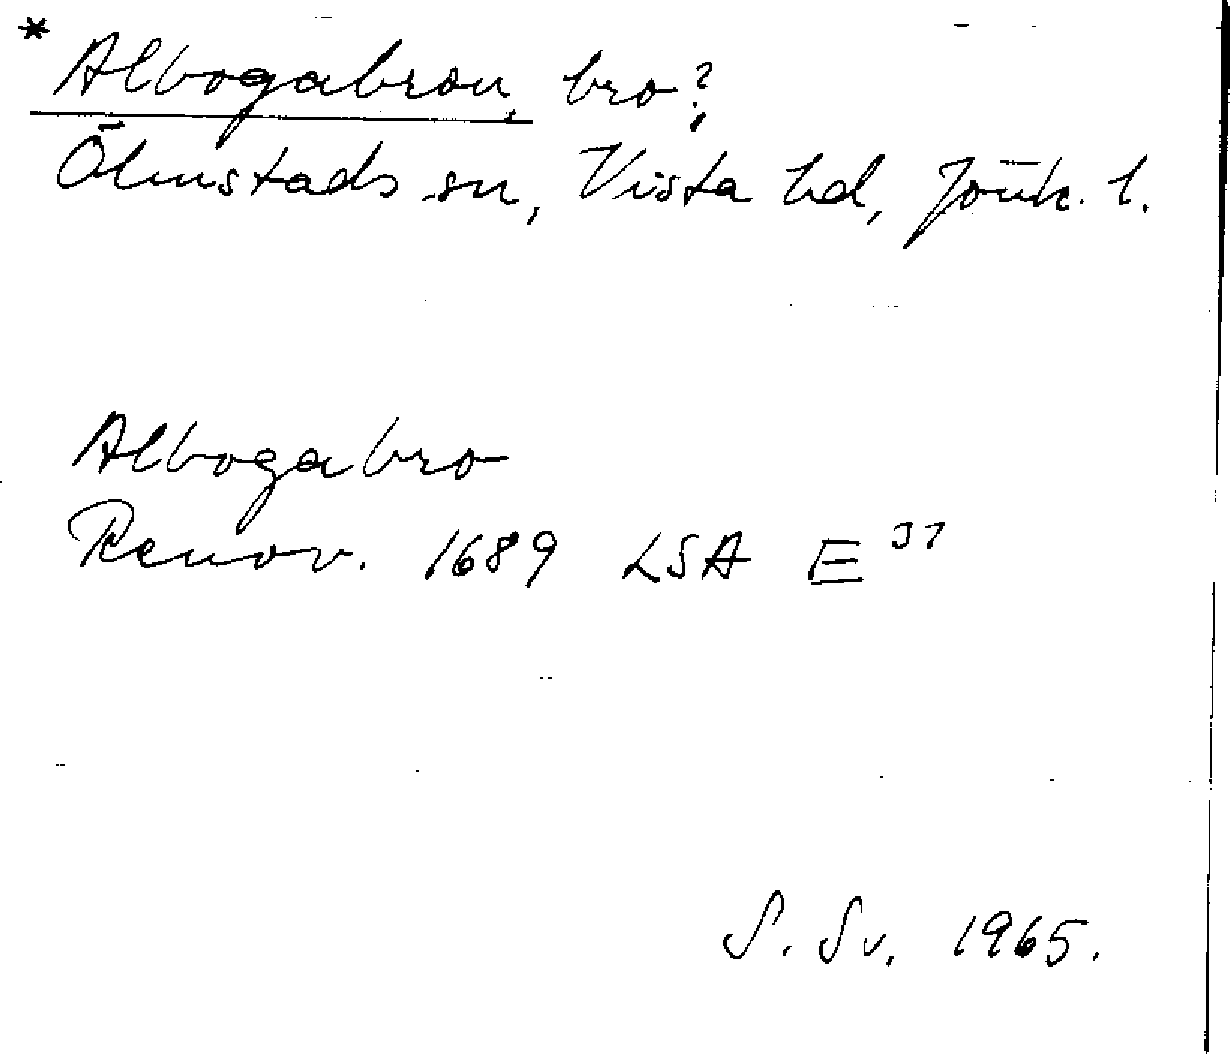 * Albogabron, bro?,
Ölmstads sn, Vista hd, Jönk. l.
Albogabro
Renov. 1689 LSA E 37
S. Sv. 1965.